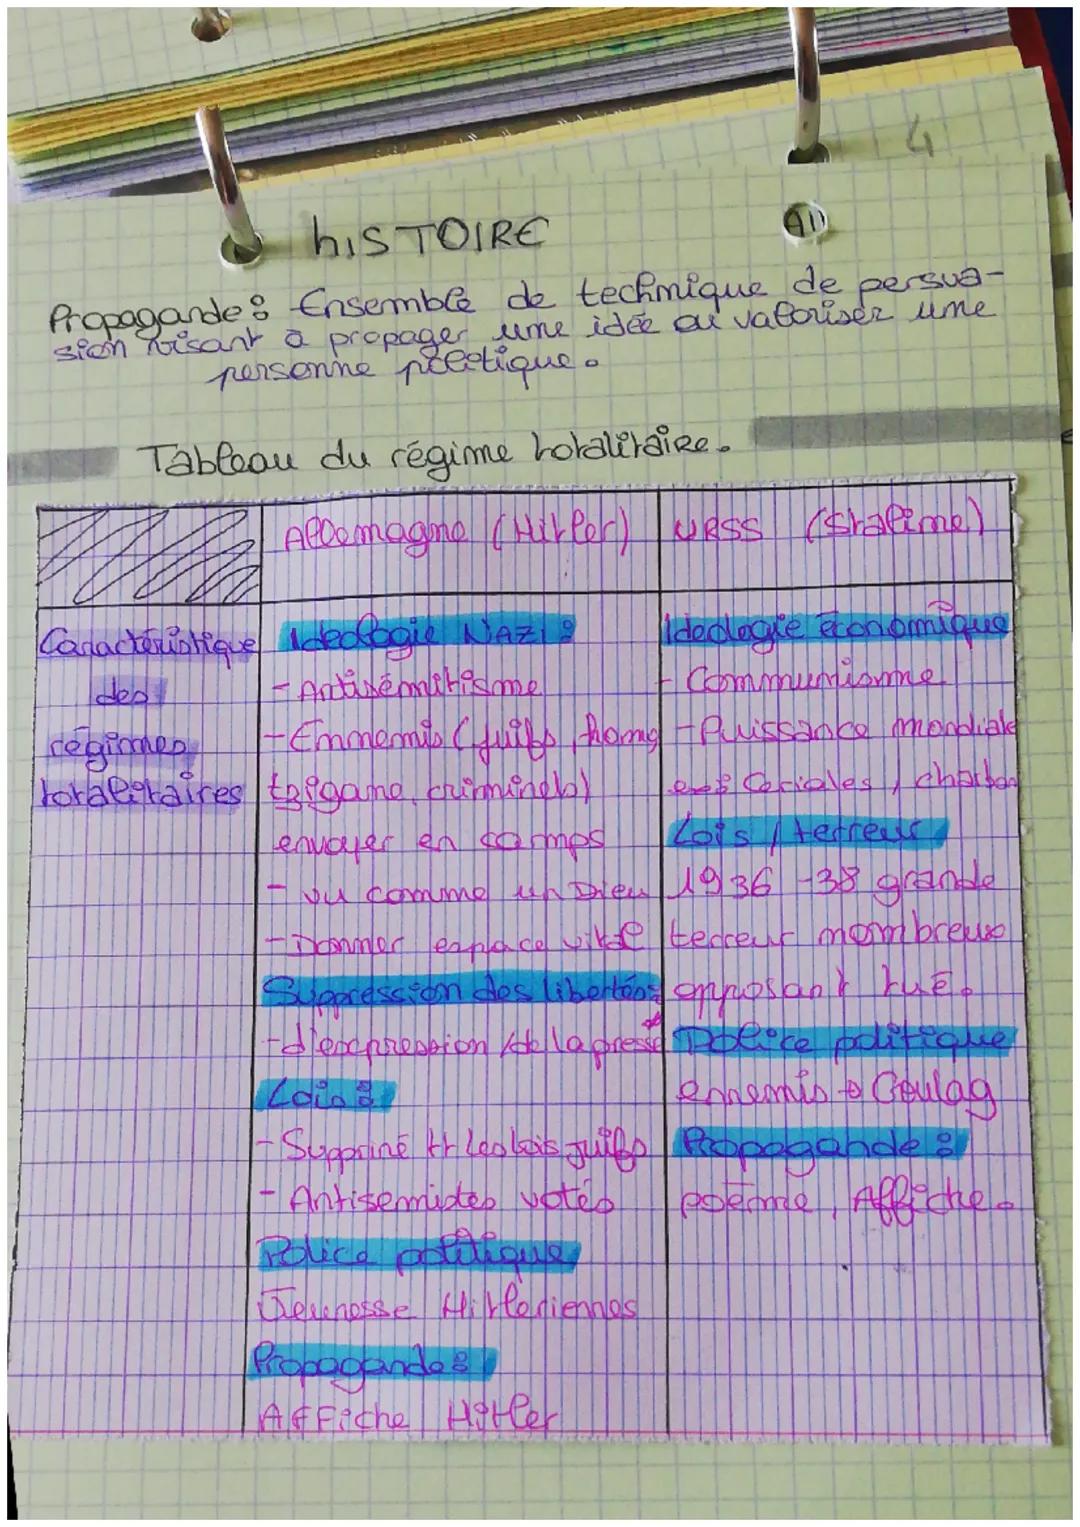 4
hISTOIRE
Propagande : Ensemble de technique de persua-
sion visant à propager une idée ou valoriser une
personne politique.
Tableau du régime totalitaire.
Allemagne (Hitler)
URSS (Staline)
Caractéristique
des
régimes
totalitaires
Ideologie NAZI :
- Antisémitisme
- Ennemis (juifs, homo,
tzigane, criminels)
envoyer en camps
- vu comme un Dieu
- Donner espace vital
Suppression des libertés :
- d'expression / de la presse
Lois :
- Supprimé tt les lois juifs
- Antisemistes votés
Police politique
Jeunesse Hitleriennes
Propagande :
Affiche Hitler
Ideologie économique
- Communisme
- Puissance mondiale
céréales, charbon
Lois / terreur
1936 - 38 grande
terreur nombreux
opposant tué.
Police politique
ennemis → Goulag
Propagande :
poème, Affiche.